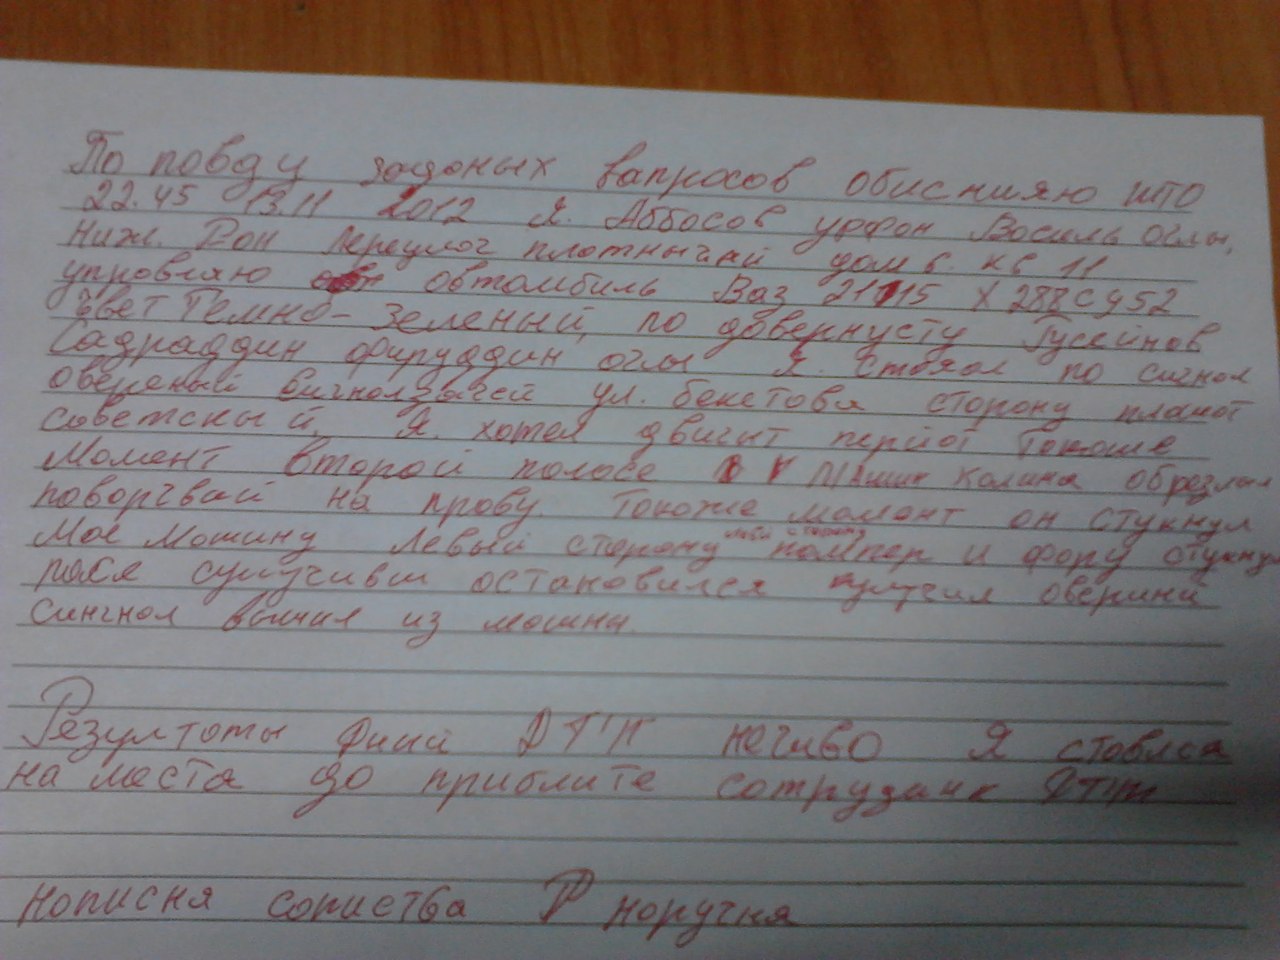 По поводу задоных вапросов обиснияю што
22.45 13.11 2012 Я. Аббосов урфон Восиль оглы,
Ниж. Рон переулог плотнычий дом 6. кв 11
упровляю овтомбиль Ваз 21115 Х288СУ52
Цвет Темно-зеленый, по довернусту Гуссейнов
Садраддин фируддин оглы Я. Стоял по сигнол
овереный сигнолзачей ул. бекетова сторону плошот
советский. Я. хотел двигыт перйот Токоше
Момент второй полосе Машин Колина обрезлал
поворчвай на прову Токоже момонт он стукнул
Мое Мошину левый сторону помпер и фору стукну
после сулучивш остановился вулучил оверини
сингнол вышил из мошины.
Резултоты дний ДТП нечиво Я стовлся
на места до приблите сотрудник ДТП
нописня сопиства Р норучня